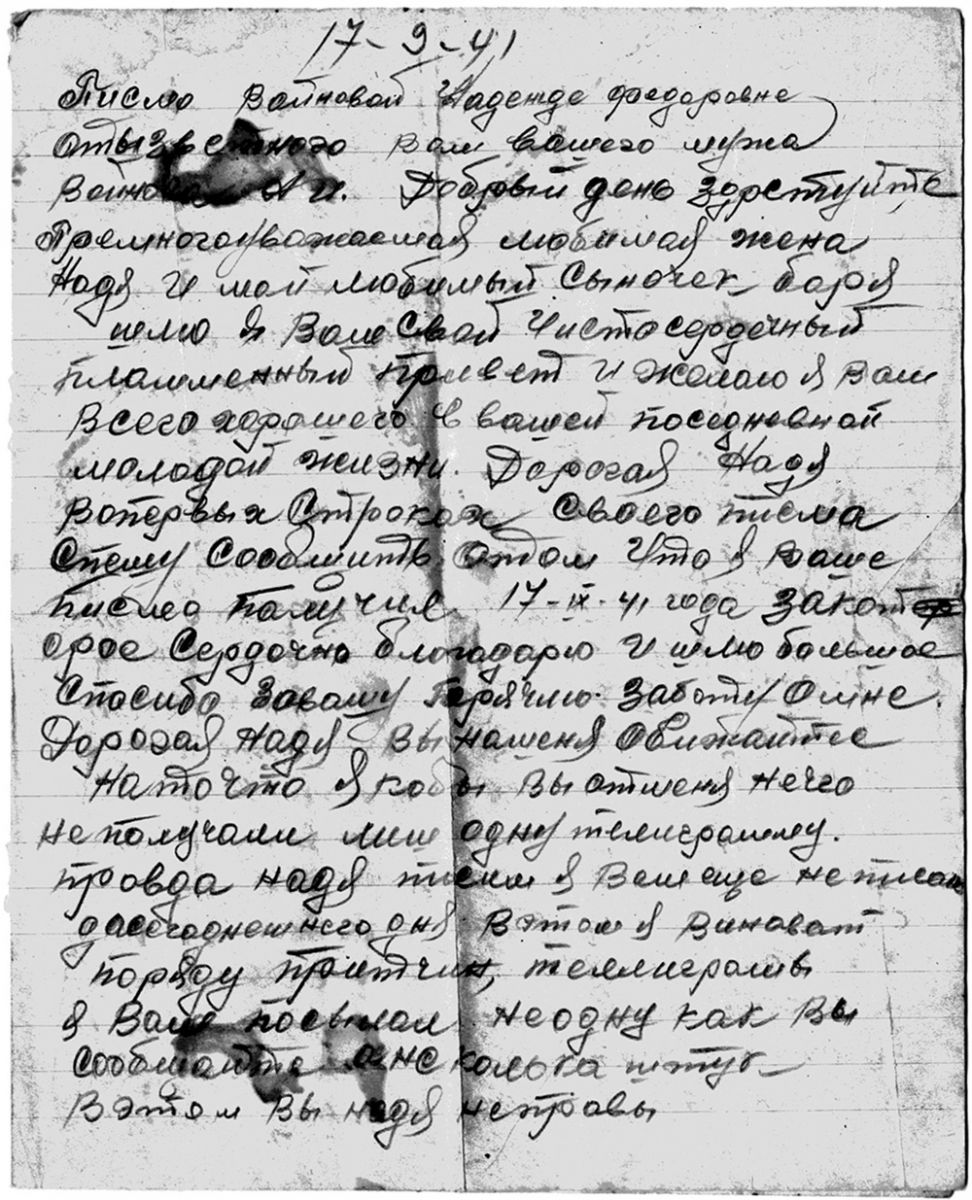 17-9-41
Писмо Войновой Надежде федоровне
отызвестного вам вашего мужа
Войнова А И. Добрый день здрстуйте
Премногоуважаемая любимая жена
Надя и мой любимый Сыночек боря
шлю я Вам Свой Чистосердечный
пламменный привет и желаю я Вам
Всего хорошего в вашей поседневной
молодой жизни. Дорогая Надя
Вопервых Строках своего писма
Спешу Сообщить отом Что я Ваше
писмо получил 17-IX-41 года закот
орое Сердочно благодарю и шлю большое
Спасибо Завашу Горячию Заботу Омне.
Дорогая Надя Вы наменя Обижаитес
Наточто якобы Вы отменя нечго
не получали лиш одну телиграмму.
правда надя писим я Вам еще неписал
досегоднешнего дня Вэтом я Виноват
поряду притчин, теллиграмы
я Вам посылал неодну как Вы
сообщаите анесколька штук
Вэтом Вы надя неправы